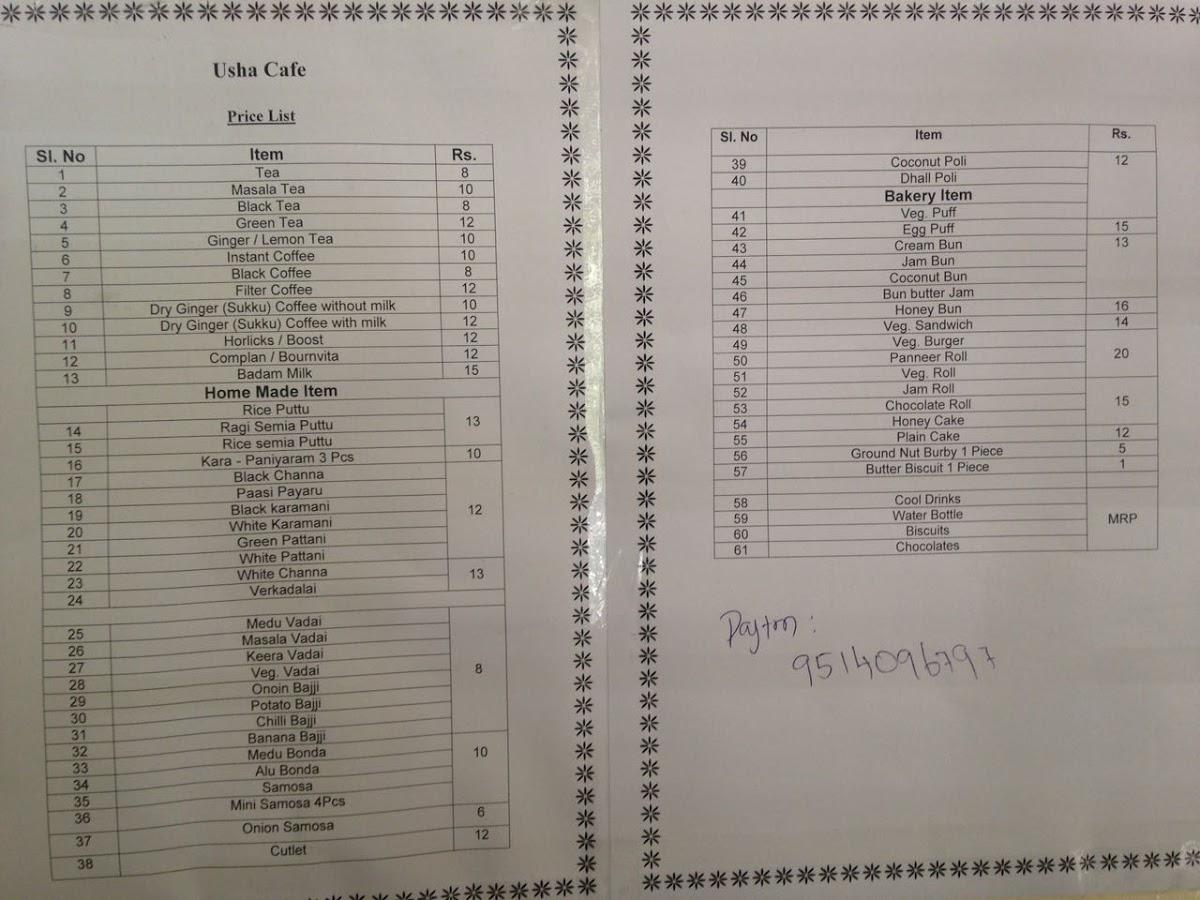 Usha Cafe
Price List
Sl. No Item Rs.
1 Tea 8
2 Masala Tea 10
3 Black Tea 8
4 Green Tea 12
5 Ginger / Lemon Tea 10
6 Instant Coffee 10
7 Black Coffee 8
8 Filter Coffee 12
9 Dry Ginger (Sukku) Coffee without milk 10
10 Dry Ginger (Sukku) Coffee with milk 12
11 Horlicks / Boost 12
12 Complan / Bournvita 12
13 Badam Milk 15
Home Made Item
Rice Puttu
14 Ragi Semia Puttu 13
15 Rice semia Puttu
16 Kara - Paniyaram 3 Pcs 10
17 Black Channa
18 Paasi Payaru
19 Black karamani 12
20 White Karamani
21 Green Pattani
22 White Pattani
23 White Channa 13
24 Verkadalai
25 Medu Vadai
26 Masala Vadai
27 Keera Vadai
28 Veg. Vadai 8
29 Onoin Bajji
30 Potato Bajji
31 Chilli Bajji
32 Banana Bajji
33 Medu Bonda 10
34 Alu Bonda
35 Samosa
36 Mini Samosa 4Pcs
37 Onion Samosa 6
38 Cutlet 12
Sl. No Item Rs.
39 Coconut Poli 12
40 Dhall Poli
Bakery Item
41 Veg. Puff
42 Egg Puff 15
43 Cream Bun 13
44 Jam Bun
45 Coconut Bun
46 Bun butter Jam
47 Honey Bun 16
48 Veg. Sandwich 14
49 Veg. Burger
50 Panneer Roll 20
51 Veg. Roll
52 Jam Roll
53 Chocolate Roll 15
54 Honey Cake
55 Plain Cake 12
56 Ground Nut Burby 1 Piece 5
57 Butter Biscuit 1 Piece 1
58 Cool Drinks
59 Water Bottle MRP
60 Biscuits
61 Chocolates
9514096797